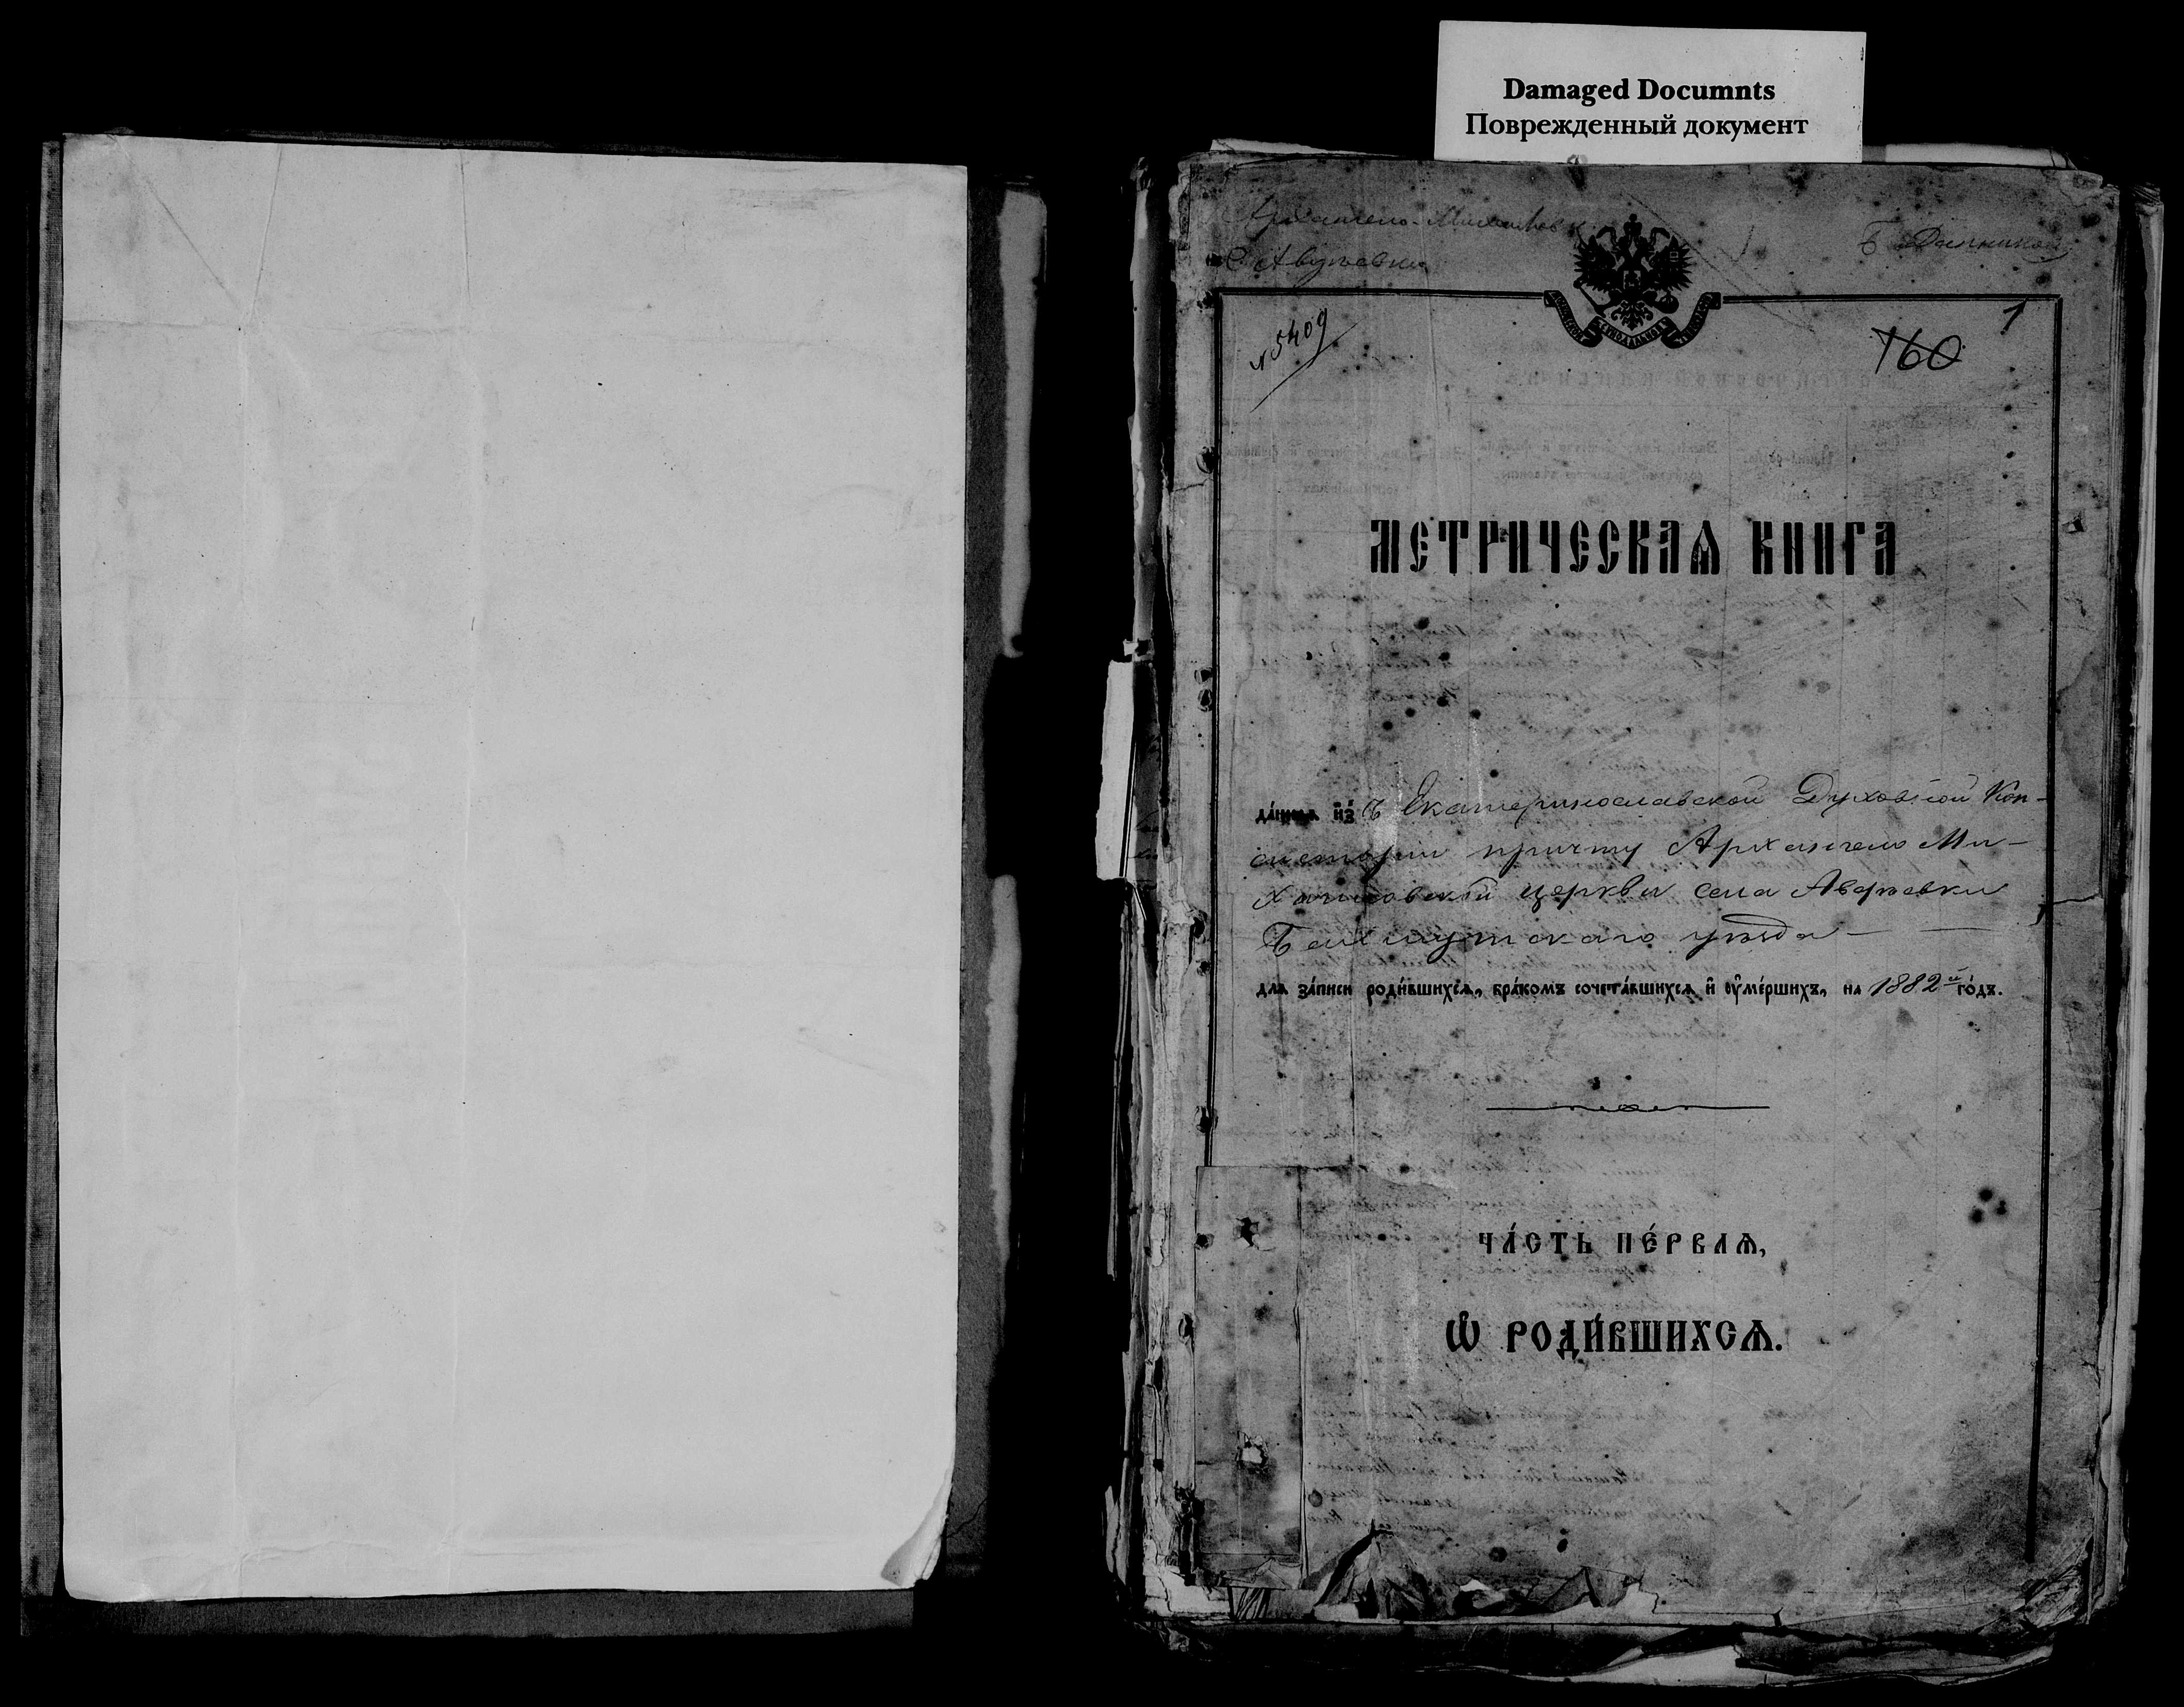 Damaged Documnts
Поврежденный документ
Архангело-Михайловск
с. Авдѣевки
№ 5409
160
1
МЕТРИЧЕСКАѦ КНИГА
да́ннаѧ и҆з̾ Екатеринославской Духовной Кон-
систоріи причту Архангело Ми-
хайловской церкви села Авдѣевки
Бахмутскаго уѣзда
длѧ за́писи роди́вшихсѧ, бра́комъ сочета́вшихсѧ и҆ ᲂу҆ме́ршихъ, на 1882й го́дъ.
ЧА́СТЬ ПЕ́РВАѦ,
Ѡ҆ РОДИ́ВШИХСѦ.